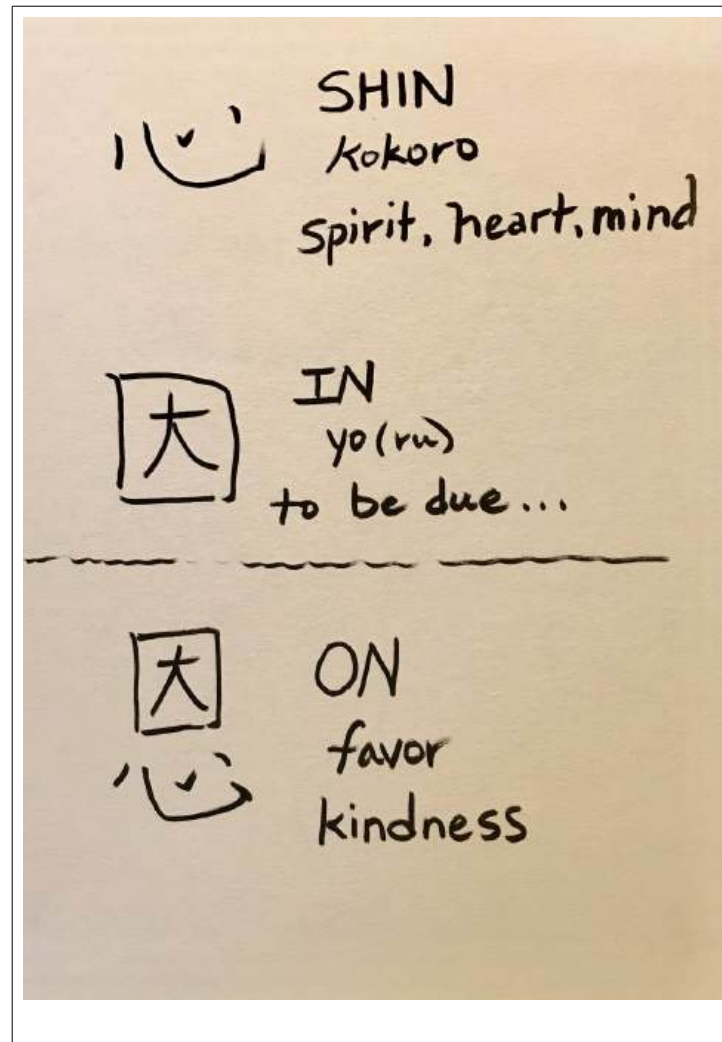 心 SHIN
kokoro
spirit, heart, mind
因 IN
yo(ru)
to be due...
恩 ON
favor
kindness